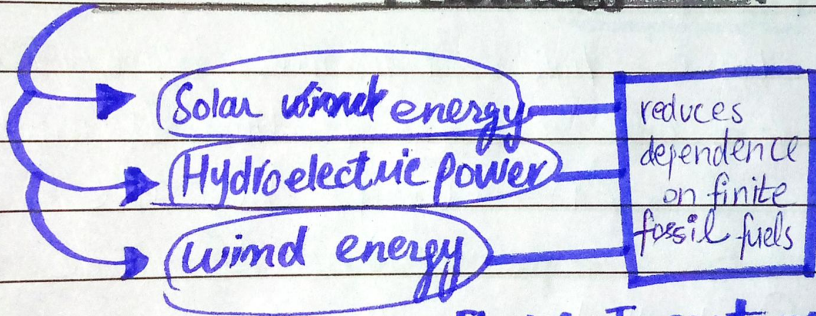 Solar energy
Hydroelectric power
wind energy
reduces
dependence
on finite
fossil fuels